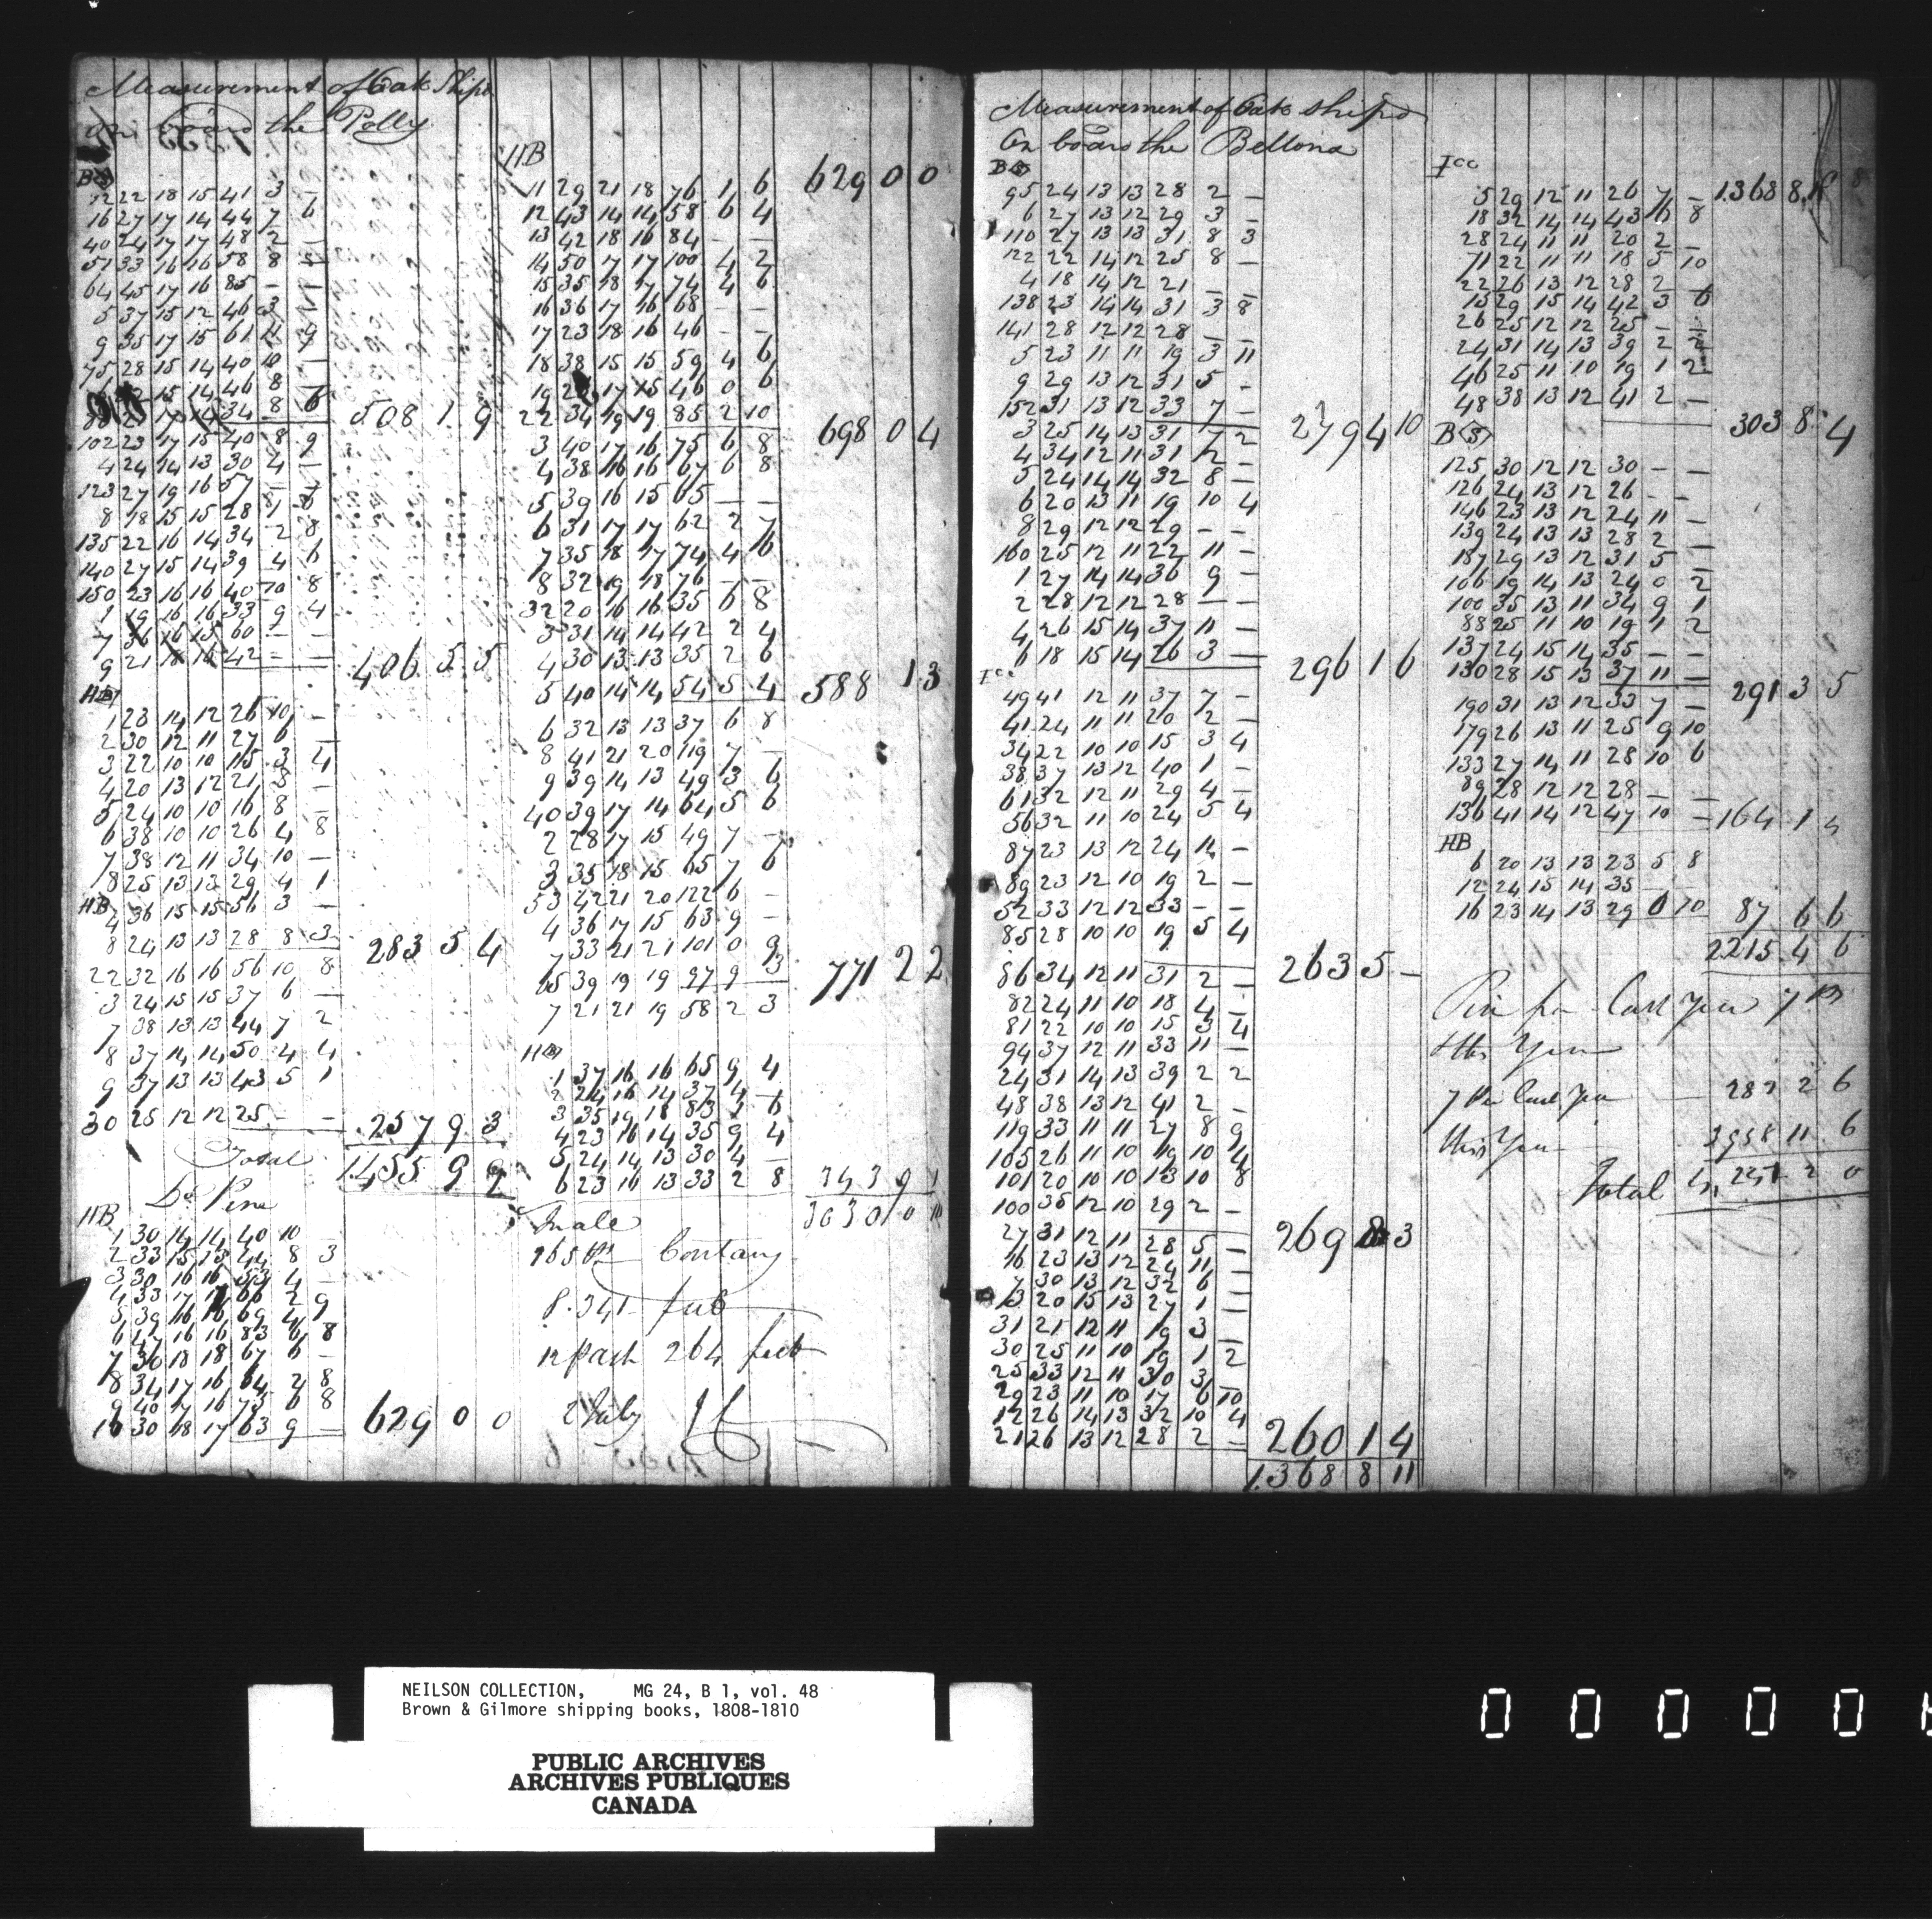 Measurement of Oak Ship'd
on board the Polly
B
12 22 18 15 41 3 –
16 27 17 14 44 7 6
40 24 17 17 48 2 –
51 33 16 16 58 8
64 45 17 16 85 –
5 37 15 12 46 3
9 35 17 15 61 11 9
75 28 15 14 40 10
15 14 46 8
34 8 6 508 1 9
102 23 17 15 40 8 9
4 24 14 13 30 4
123 27 19 16 57 –
8 18 15 15 28 1 3
135 22 16 14 34 2 8
140 27 15 14 39 4 6
150 23 16 16 40 10 8
1 19 16 16 33 9 4
7 36 16 15 60 – –
9 21 18 16 42 – – 406 5 5
HB
1 23 14 12 26 10 –
2 30 12 11 27 6 –
3 22 10 10 15 3 4
4 20 13 12 21 8 –
5 24 10 10 16 8 –
6 38 10 10 26 4 8
7 38 12 11 34 10 –
8 25 13 13 29 4 1
HB
4 36 15 15 56 3 –
8 24 13 13 28 8 3 283 5 4
22 32 16 16 56 10 8
3 24 15 15 37 6 –
7 38 13 13 44 7 2
8 37 14 14 50 4 4
9 37 13 13 43 5 1
30 25 12 12 25 – – 257 9 3
Total 1455 9 9
Do Pine
HB
1 30 14 14 40 10 –
2 33 15 13 44 8 3
3 30 16 16 53 4 –
4 33 17 17 66 2 9
5 39 16 16 69 4
6 47 16 16 83 6 8
7 30 18 18 67 6 –
8 34 17 16 64 2 8
9 40 17 16 75 6 8
10 30 18 17 63 9 – 629 0 0
HB 629 0 0
11 29 21 18 76 1 6
12 43 14 14 58 6 4
13 42 18 16 84 – –
14 50 17 17 100 4 2
15 35 18 17 74 4 6
16 36 17 16 68 – –
17 23 18 16 46 – –
18 38 15 15 59 4 6
19 17 15 46 0 6
22 34 19 19 85 2 10 698 0 4
3 40 17 16 75 6 8
4 38 16 16 67 6 8
5 39 16 15 65 – –
6 31 17 17 62 2 7
7 35 18 17 74 4 6
8 32 19 18 76 – –
32 20 16 16 35 6 8
3 31 14 14 42 2 4
4 30 13 13 35 2 6
5 40 14 14 54 5 4 588 1 3
6 32 13 13 37 6 8
8 41 21 20 119 7 –
9 39 14 13 49 3 6
40 39 17 14 64 5 6
2 28 17 15 49 7 –
3 35 18 15 65 7 6
53 42 21 20 122 6 –
4 36 17 15 63 9 –
7 33 21 21 101 0 9
65 39 19 19 97 9 3 771 2 2
7 21 21 19 58 2 3
HB
1 37 16 16 65 9 4
2 24 16 14 37 4 –
3 35 19 18 83 1 6
4 23 16 14 35 9 4
5 24 14 13 30 4 –
6 23 16 13 33 2 8 343 9 1
3030 10
In ale
Contany
8.341 feet
264 feet
2 July
Measurement of Oak ship'd
On board the Bellona
B
95 24 13 13 28 2 –
6 27 13 12 29 3 –
110 27 13 13 31 8 3
122 22 14 12 25 8 –
4 18 14 12 21 – –
138 23 14 14 31 3 8
141 28 12 12 28 – –
5 23 11 11 19 3 11
9 29 13 12 31 5 –
152 31 13 12 33 7 – 279 4 10
3 25 14 13 31 7 2
4 34 12 11 31 2 –
5 24 14 14 32 8 –
6 20 13 11 19 10 4
8 29 12 12 29 – –
160 25 12 11 22 11 –
1 27 14 14 36 9 –
2 28 12 12 28 – –
4 26 15 14 37 11 –
6 18 15 14 26 3 – 296 1 6
Icc
49 41 12 11 37 7 –
41 24 11 11 20 2 –
34 22 10 10 15 3 4
38 37 13 12 40 1 –
61 32 12 11 29 4 –
56 32 11 10 24 5 4
87 23 13 12 24 11 –
89 23 12 10 19 2 –
52 33 12 12 33 – –
85 28 10 10 19 5 4 263 5 –
86 34 12 11 31 2 –
82 24 11 10 18 4 –
81 22 10 10 15 3 4
94 37 12 11 33 11 –
24 31 14 13 39 2 2
48 38 13 12 41 2 –
119 33 11 11 27 8 9
105 26 11 10 19 10 4
101 20 10 10 13 10 8
100 35 12 10 29 2 – 269 8 3
27 31 12 11 28 5 –
16 23 13 12 24 11 –
7 30 13 12 32 6 –
13 20 15 13 27 1 –
31 21 12 11 19 3 –
30 25 11 10 19 1 2
25 33 12 11 30 3 –
29 23 11 10 17 6 10
12 26 14 13 32 10 4
21 26 13 12 28 2 – 260 1 4
1.368 8 11
Icc
5 29 12 11 26 7 – 1368 8
18 32 14 14 43 6 8
28 24 11 11 20 2 –
71 22 11 11 18 5 10
22 26 13 12 28 2 –
15 29 15 14 42 3 6
26 25 12 12 25 – –
24 31 14 13 39 2 2
46 25 11 10 19 1 2
48 38 13 12 41 2 – 303 8 4
B(S)
125 30 12 12 30 – –
126 24 13 12 26 – –
146 23 13 12 24 11 –
139 24 13 13 28 2 –
187 29 13 12 31 5 –
106 19 14 13 24 0 2
100 35 13 11 34 9 1
88 25 11 10 19 1 2
137 24 15 14 35 – –
130 28 15 13 37 11 – 291 3 5
190 31 13 12 33 7 –
179 26 13 11 25 9 10
133 27 14 11 28 10 6
89 28 12 12 28 – –
136 41 14 12 47 10 – 164 1 4
HB
6 20 13 13 23 5 8
12 24 15 14 35 – –
16 23 14 13 29 0 10 87 6 6
2215 4 6
Last Year
this Year
7 Last Year 6
this Year 11 6
Total
NEILSON COLLECTION, MG 24, B 1, vol. 48
Brown & Gilmore shipping books, 1808-1810
PUBLIC ARCHIVES
ARCHIVES PUBLIQUES
CANADA
0 0 0 0 0